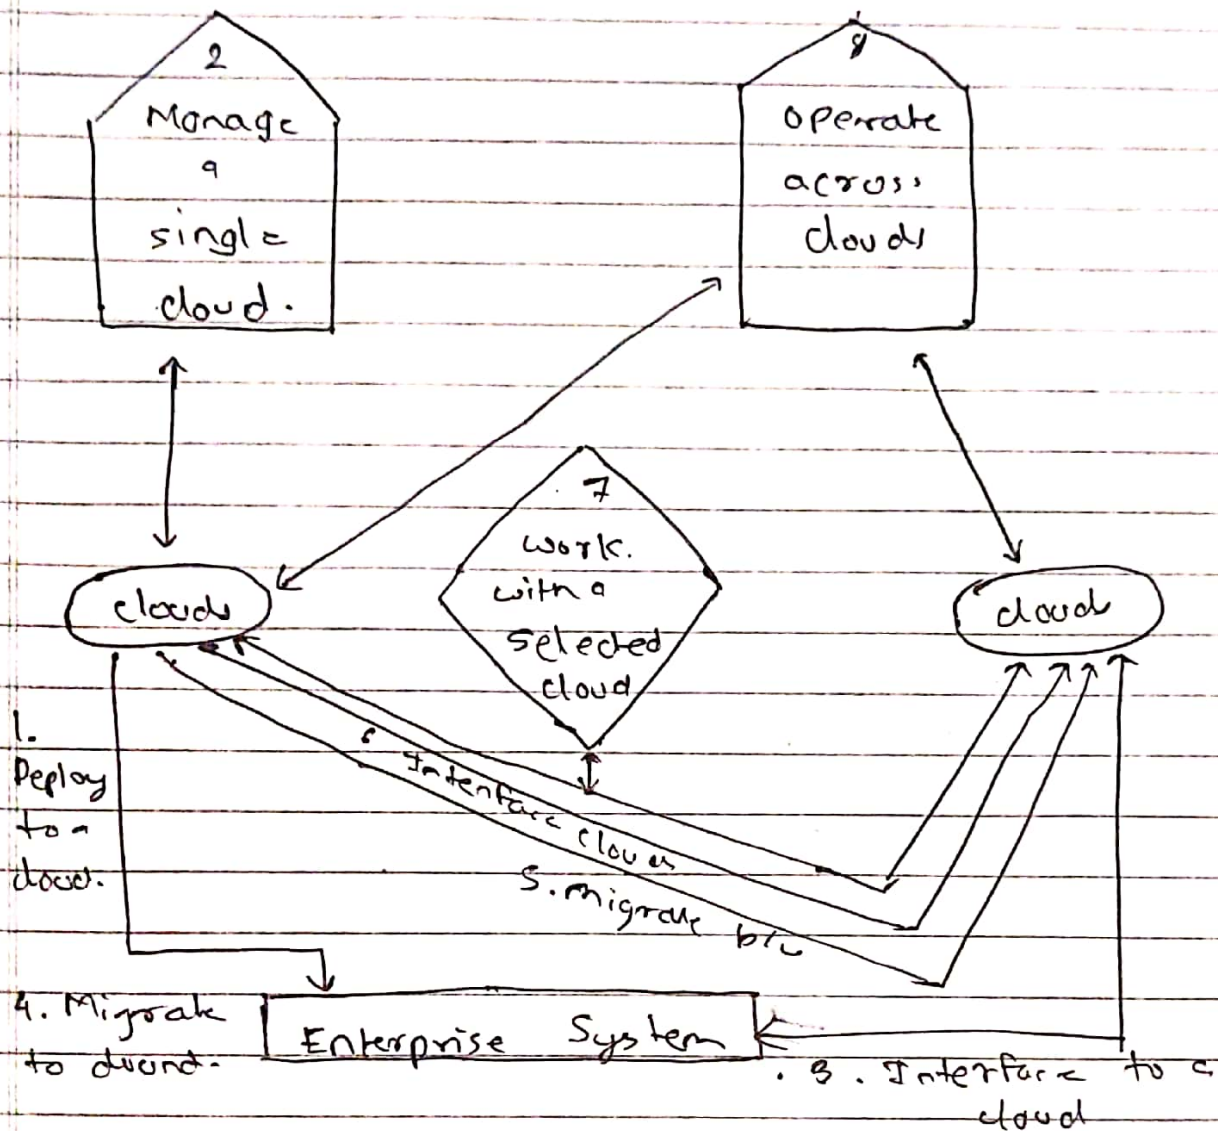 2
Manage
a
single
cloud.
8
operate
across
clouds
7
work.
with a
selected
cloud
clouds
cloud
1.
Deploy
to a
cloud.
6 Interface clouds
5. Migrate b/w
4. Migrate
to
Enterprise System
3. Interface to a
cloud